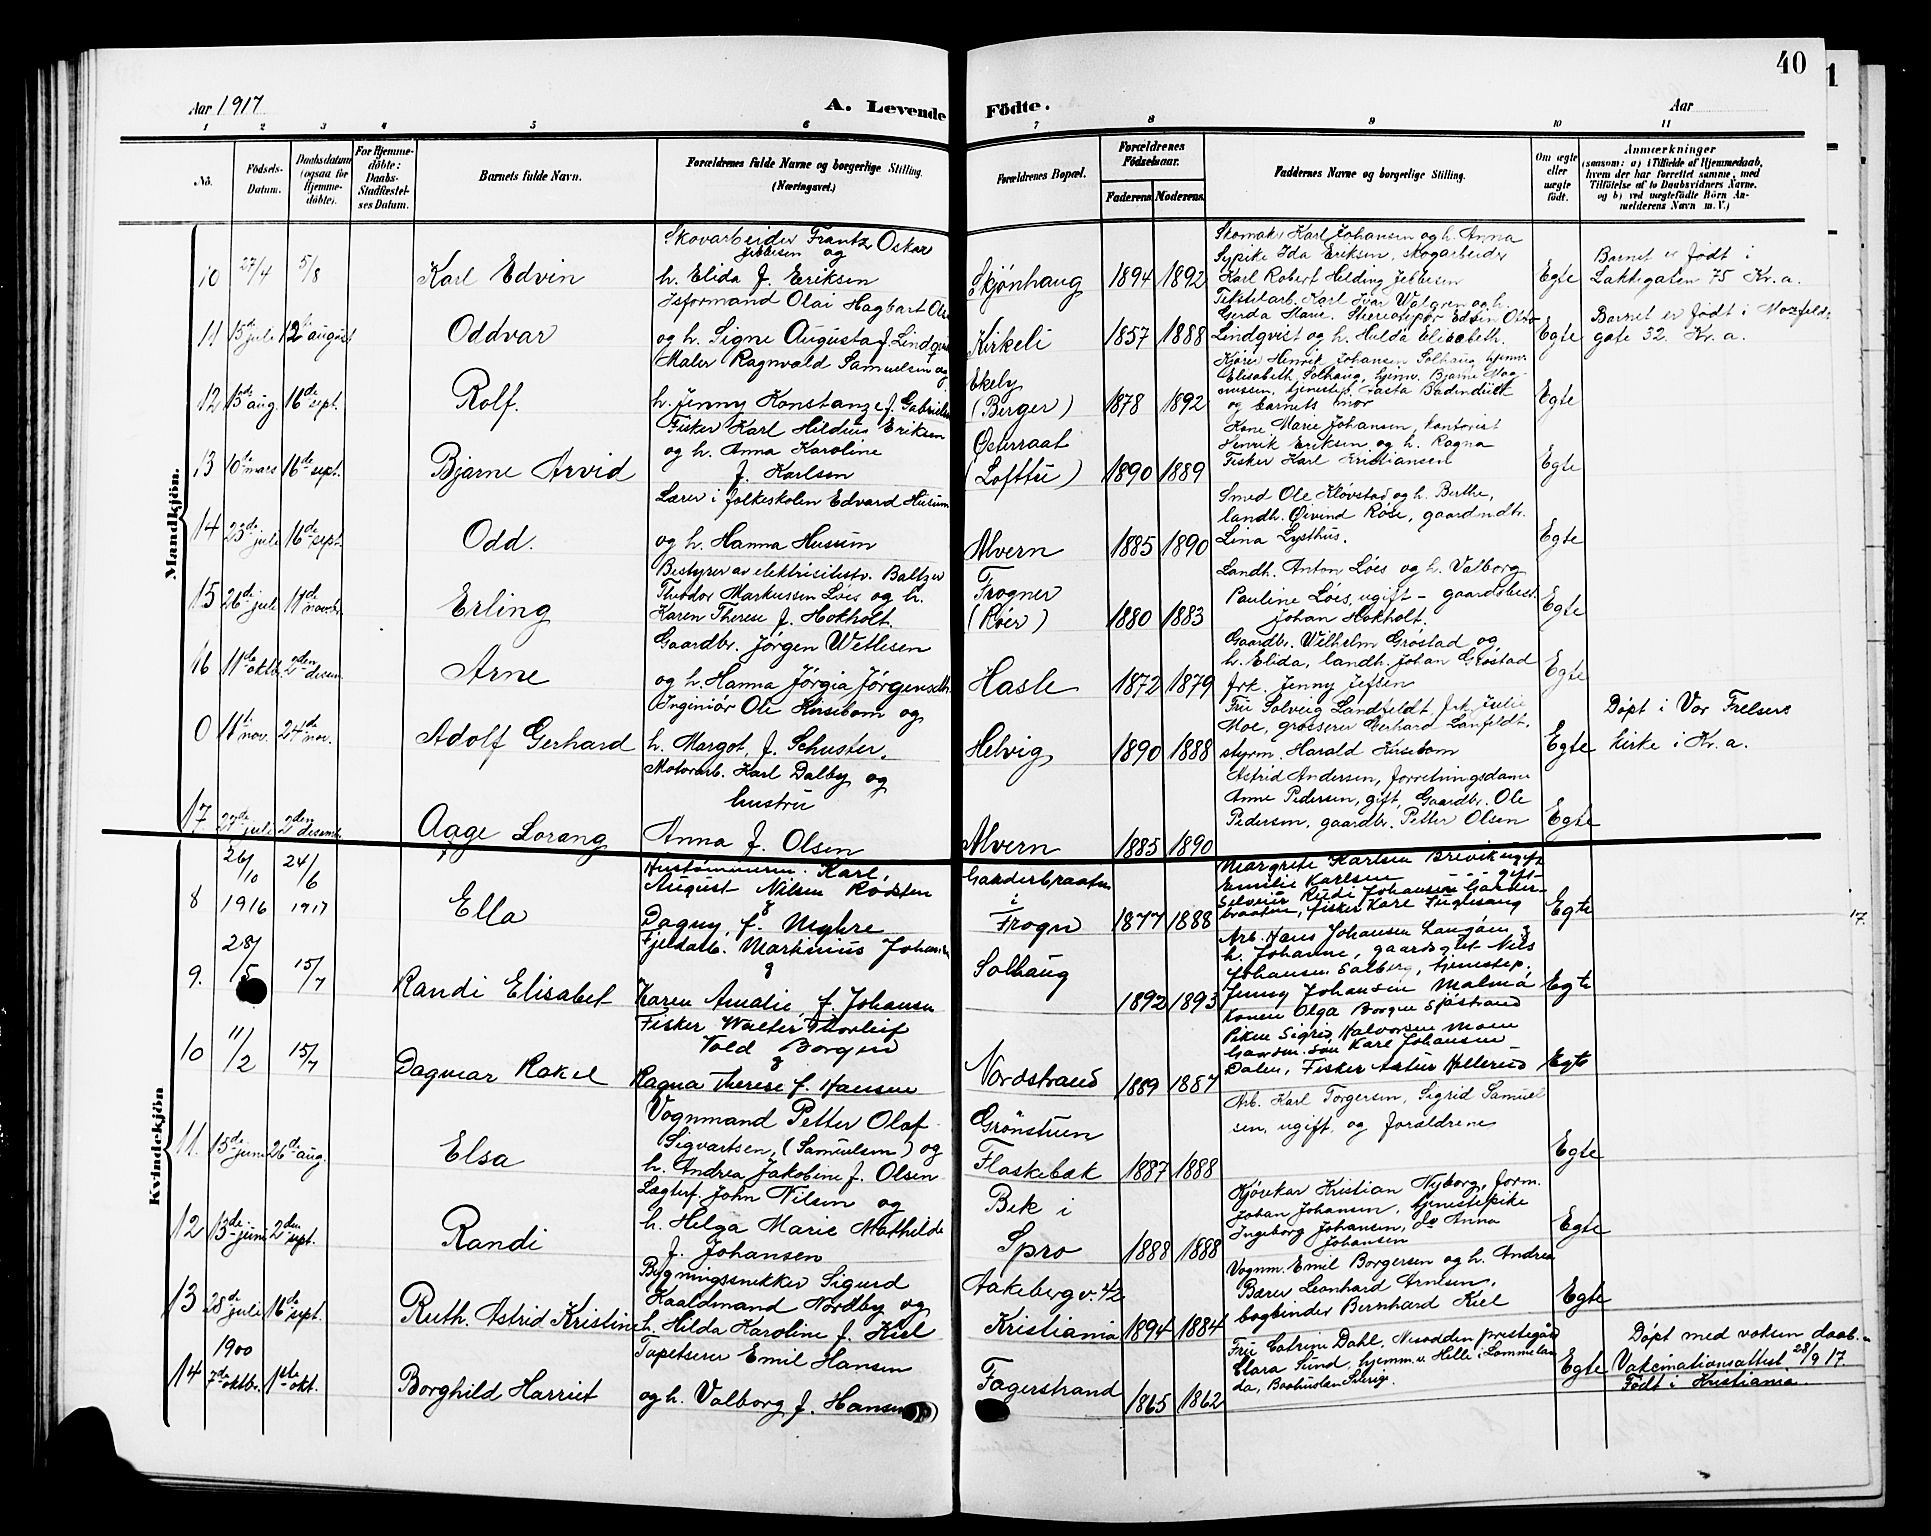 40
Aar 1917
A. Levende Födte.
Aar
1 2 3 4 5 6 7 8 9 10 11
No.
Födsels-Datum.
Daabsdatum (ogsaa for Hjemme-döbte).
For Hjemme-döbte: Daabs-Stadfæstel-ses Datum.
Barnets fulde Navn.
Forældrenes fulde Navne og borgerlige Stilling. (Næringsvei.)
Forældrenes Bopæl.
Forældrenes Födselsaar.
Faderens Moderens
Faddernes Navne og borgerlige Stilling.
Om ægte eller uægte født.
Anmærkninger
(saasom: a) i Tilfælde af Hjemmedaab, hvem der har forrettet samme, med Tilföielse af to Daabsvidners Navne. og b) ved uægtefödte Börn An-melderens Navn m. V.)
Mandkjön.
10 27/4 5/8
Karl Edvin
Skovarbeider Frantz Oskar
Jebbesen og
h. Elida f. Eriksen
Skjønhaug
1894 1892
Skomak. Karl Johansen og h. Anna
Sypike Ida Eriksen, skogarbeider
Karl Robert Hilding Jebbesen
Egte
Barnet er født i
Lakkegaten 75 Kr.a.
11 15de juli 12te august
Oddvar
Isformand Olai Hagbart
og h. Signe Augusta f. Lindqvist
Kirkeli
1857 1888
Tekstilarb. Karl Ivar Walgren og h.
Gerda Marie. Stereotypør Edvin Otto
Lindqvist og h. Hulda Elisabeth.
Egte
Barnet er født i
gate 32. Kr.a.
12 13de aug. 16de sept.
Rolf.
Maler Ragnvald Samuelsen og
h. Jenny Konstanze f. Gabrielsen
Ekely
(Berger)
1878 1892
Kjører Henrik Johansen Solhaug, hjemv.
Elisabeth Solhaug, hjemv. Bjarne Mag-
nussen, tjenestep.
og barnets mor
Egte
13 10de mars 16de sept.
Bjarne Arvid
Fisker Karl Hildius Eriksen
og h. Anna Karoline
f. Karlsen
Østeraat
(Lofttu)
1890 1889
Kone Marie Johansen, kontorist
Henrik Eriksen og h. Ragna
Fisker Karl Kristiansen
Egte
14 23de juli 16de sept.
Odd.
Lærer i folkeskolen Edvard Husum
og h. Hanna Husum
Alvern
1885 1890
Smed Ole Kløvstad og h. Berthe,
landh. Øivind Røse, gaardmdtr.
Lina Lysthus.
Egte
15 26de juli 11de novbr.
Erling
Bestyrer av elektrisitetsv. Baltzer
Theodor Markussen Løes og h.
Karen Therese f. Hokholt.
Frogner
(Røer)
1880 1883
Landh. Anton Løes og h. Valborg
Pauline Løes, ugift - gaardsbest.
Johan Hokholt.
Egte
16 11te oktb. 2den desem.
Arne
Gaardbr. Jörgen Wetlesen
og h. Hanna Jörgia Jörgenseth
Hasle
1872 1879
Gaardbr. Wilhelm Grøstad og
h. Elida, landh. Johan Grøstad
frk. Jenny Jefsen
Egte
0 11te nov. 24de nov.
Adolf Gerhard
Ingeniør Ole Kirsebom og
h. Margot, f. Schuster.
Helvig
1890 1888
Frk Solveig Landfeldt, frk Julie
Moe, grosserer Gerhard Lanfeldt,
styrm. Harald Kirsebom
Egte
Døpt i Vor Frelsers
kirke i Kr.a.
17 27de juli 2den desemb.
Aage Lorang
Motorarb. Karl Dalby og
hustru
Anna f. Olsen
Alvern
1885 1890
Astrid Andersen, forretningsdame
Anne Pedersen, gift, Gaardbr. Ole
Pedersen, gaardbr. Petter Olsen
Egte
Kvindekjön
8 26/10 1916 24/6 1917
Ella
Karl,
August Nilsen Rodsten
&
Dagny, f. Myhre
i
Frogn
1877 1888
Margrete Karlsen Brevik ugift
Emilie Karlsen - - gift-
Rudi Johansen Gander-
braaten, fisker Karl Fuglesang
Egte
9. 28/5 15/7
Randi Elisabet
Fjeldarb. Martinius Johansen
&
Karen Amalie, f. Johansen
Solhaug
1892 1893
Arb. Hans Johansen &
h. Johanne, gaardsgut Nils
Johansen Solberg, tjenestep.
Jenny Johansen Malmö
Egte
10 11/2 15/7
Dagmar Rakel
Fisker Walter Thorleif
Vold Borgen
&
Ragna Therese f. Hansen
Nordstrand
1889 1887
Konen Olga Borgen
Piken Sigrid Halvorsen Moen
Gaardm. søn Karl Johansen
Dalen, Fisker Astur Hellerud
Egte
11. 15de juni 26de aug.
Elsa
Vognmand Petter Olaf
Sigvartsen, (Samuelsen) og
h. Andrea Jakobine f. Olsen
Grönstuen
Flaskebæk
1887 1888
Arb. Karl Torgersen, Sigrid Samuel
sen, ugift, og forældrene
Egte
12 13de juni 2den sept.
Randi
Lægterf. John Nilsen og
h. Helga Marie Mathilde
f. Johansen
Bek i
Spro
1888 1888
Kjørekar Kristian Nyborg, form.
Johan Johansen, tjenestepike
Ingeborg Johansen, do Anna
Johansen
Egte
13 28de juli 16de sept.
Ruth. Astrid Kristine
Bygningssnekker Sigurd
Kaaldmand Nordby og
h. Hilda Karoline f. Kiel
Aakeberg v. 42
Kristiania
1894 1884
Vognm. Emil Borgersen og h. Andrea
Bærer Leonhard Arnesen,
bogbinder Bernhard Kiel
Egte
14 1900 7de oktbr. 1ste okt.
Borghild Harriet
Tapetserer Emil Hansen
og h. Valborg f. Hansen
Fagerstrand
1865 1862
Fru Catrine Dahl, Nesodden prestegård
Clara Sund, hjemm.v. Helle i Lommelan
da, Bashuslan Sverig.
Egte
Døpt med voksen daab.
Vakcinationsattest 28/9 17
Født i Kristiania.
17.